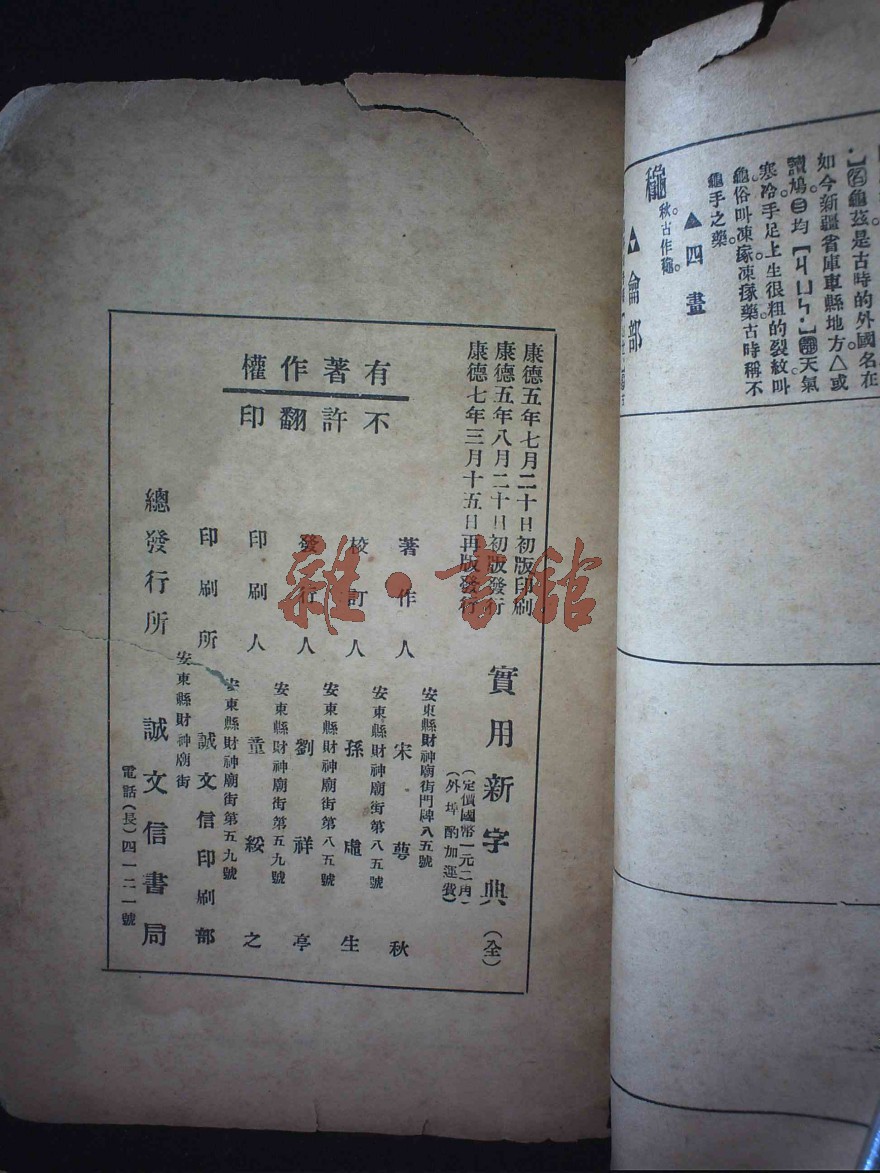 ·【名龜茲是古時的外國名在
如今新疆省庫車縣地方△或
讀鳩㊂均【ㄐㄩㄣ·】天氣
寒冷手足上生很粗的裂紋叫
龜俗叫凍瘃凍瘃藥古時稱不
龜手之藥
▲四畫
龝 秋。古作龝。
龠部
康德五年七月二十日初版印刷
康德五年八月二十日初版發行
康德七年三月十五日再版發行
有著作權
不許翻印
實用新字典(全)
(定價國幣一元二角)
(外埠酌加運費)
安東縣財神廟街門牌八五號
著作人 宋萼秋
安東縣財神廟街第八五號
校訂人 孫虛生
安東縣財神廟街第八五號
發行人 劉祥亭
安東縣財神廟街第五九號
印刷人 童綏之
安東縣財神廟街第五九號
印刷所 誠文信印刷部
安東縣財神廟街
總發行所 誠文信書局
電話(長)四一二一號
雜·書館